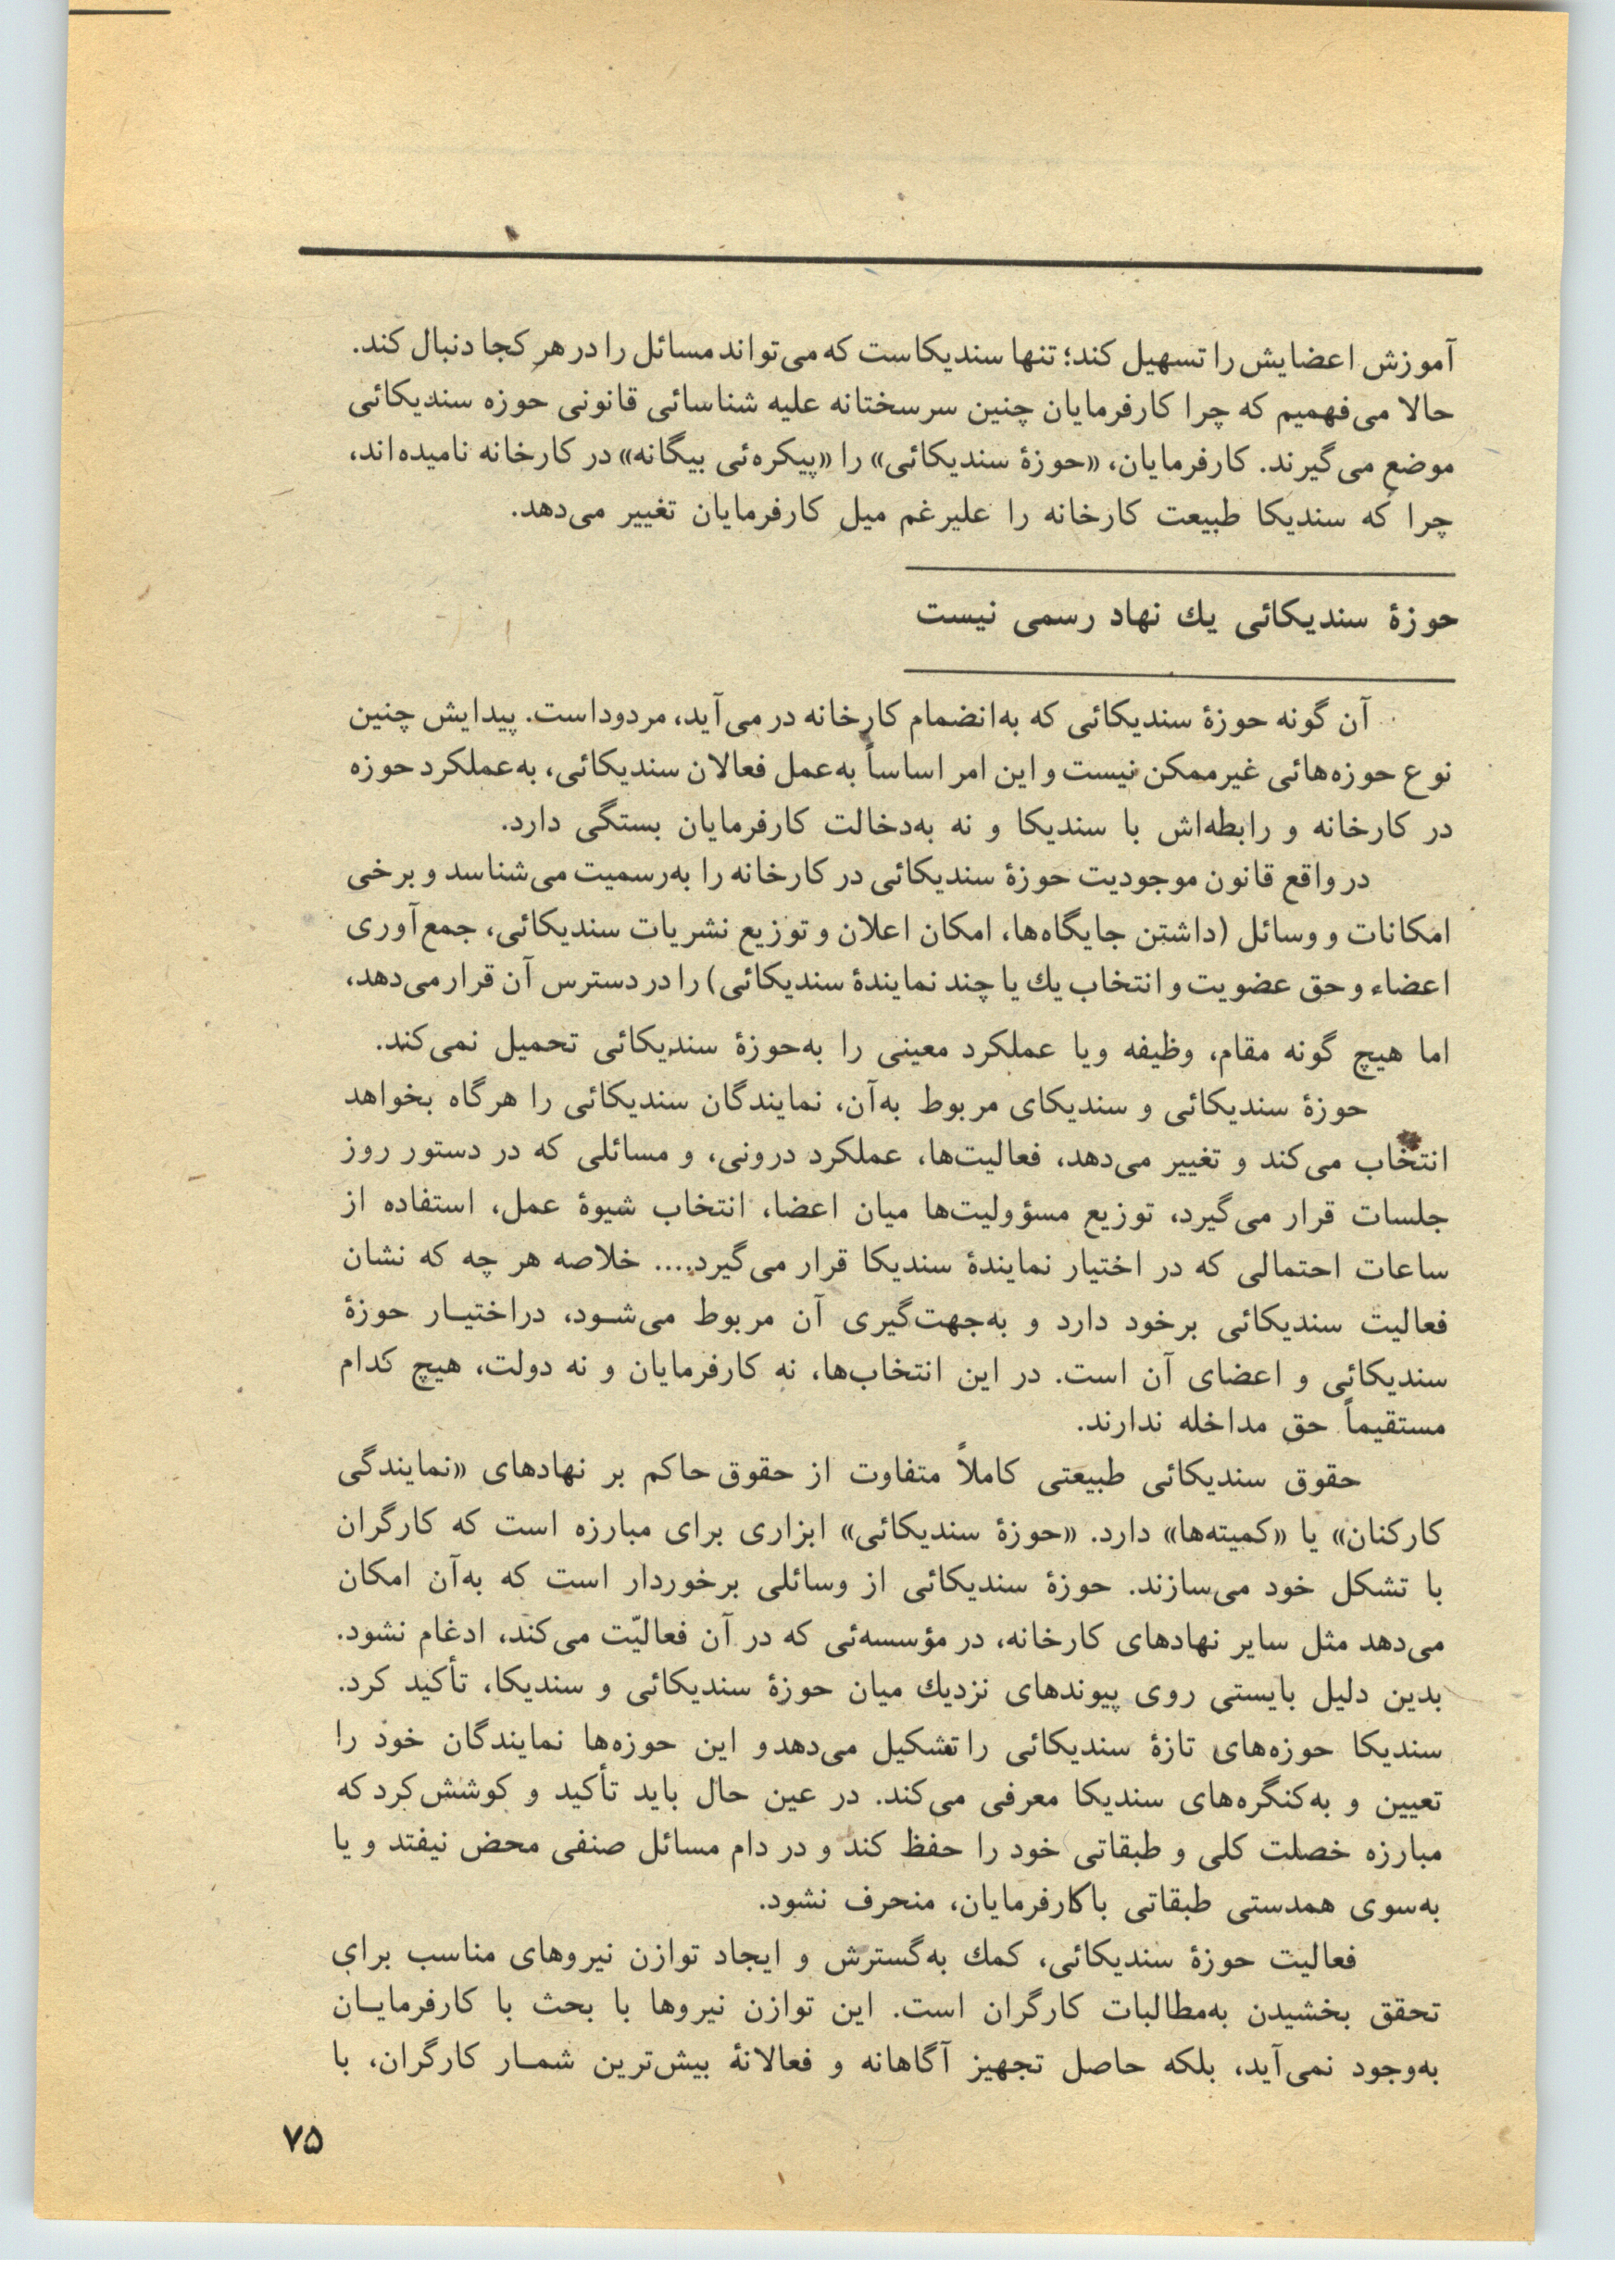 آموزش اعضایش را تسهیل کند؛ تنها سندیکاست که می‌تواند مسائل را در هر کجا دنبال کند.
حالا می‌فهمیم که چرا کارفرمایان چنین سرسختانه علیه شناسائی قانونی حوزه سندیکائی
موضع می‌گیرند. کارفرمایان، «حوزۀ سندیکائی» را «پیکره‌ئی بیگانه» در کارخانه نامیده‌اند،
چرا که سندیکا طبیعت کارخانه را علیرغم میل کارفرمایان تغییر می‌دهد.
حوزۀ سندیکائی یك نهاد رسمی نیست
آن گونه حوزۀ سندیکائی که به‌انضمام کارخانه در می‌آید، مردود است. پیدایش چنین
نوع حوزه‌هائی غیرممکن نیست و این امر اساساً به‌عمل فعالان سندیکائی، به‌عملکرد حوزه
در کارخانه و رابطه‌اش با سندیکا و نه به‌دخالت کارفرمایان بستگی دارد.
در واقع قانون موجودیت حوزۀ سندیکائی در کارخانه را به‌رسمیت می‌شناسد و برخی
امکانات و وسائل (داشتن جایگاه‌ها، امکان اعلان و توزیع نشریات سندیکائی، جمع‌آوری
اعضاء و حق عضویت و انتخاب یك یا چند نمایندۀ سندیکائی) را در دسترس آن قرار می‌دهد،
اما هیچ گونه مقام، وظیفه ویا عملکرد معینی را به‌حوزۀ سندیکائی تحمیل نمی‌کند.
حوزۀ سندیکائی و سندیکای مربوط به‌آن، نمایندگان سندیکائی را هرگاه بخواهد
انتخاب می‌کند و تغییر می‌دهد، فعالیت‌ها، عملکرد درونی، و مسائلی که در دستور روز
جلسات قرار می‌گیرد، توزیع مسؤولیت‌ها میان اعضا، انتخاب شیوۀ عمل، استفاده از
ساعات احتمالی که در اختیار نمایندۀ سندیکا قرار می‌گیرد.... خلاصه هر چه که نشان
فعالیت سندیکائی برخود دارد و به‌جهت‌گیری آن مربوط می‌شـود، دراختیـار حوزۀ
سندیکائی و اعضای آن است. در این انتخاب‌ها، نه کارفرمایان و نه دولت، هیچ کدام
مستقیماً حق مداخله ندارند.
حقوق سندیکائی طبیعتی کاملاً متفاوت از حقوق حاکم بر نهادهای «نمایندگی
کارکنان» یا «کمیته‌ها» دارد. «حوزۀ سندیکائی» ابزاری برای مبارزه است که کارگران
با تشکل خود می‌سازند. حوزۀ سندیکائی از وسائلی برخوردار است که به‌آن امکان
می‌دهد مثل سایر نهادهای کارخانه، در مؤسسه‌ئی که در آن فعالیّت می‌کند، ادغام نشود.
بدین دلیل بایستی روی پیوندهای نزدیك میان حوزۀ سندیکائی و سندیکا، تأکید کرد.
سندیکا حوزه‌های تازۀ سندیکائی را تشکیل می‌دهد و این حوزه‌ها نمایندگان خود را
تعیین و به‌کنگره‌های سندیکا معرفی می‌کند. در عین حال باید تأکید و کوشش کرد که
مبارزه خصلت کلی و طبقاتی خود را حفظ کند و در دام مسائل صنفی محض نیفتد و یا
به‌سوی همدستی طبقاتی باکارفرمایان، منحرف نشود.
فعالیت حوزۀ سندیکائی، کمك به‌گسترش و ایجاد توازن نیروهای مناسب برای
تحقق بخشیدن به‌مطالبات کارگران است. این توازن نیروها با بحث با کارفرمایـان
به‌وجود نمی‌آید، بلکه حاصل تجهیز آگاهانه و فعالانۀ بیش‌ترین شمـار کارگران، با
۷۵